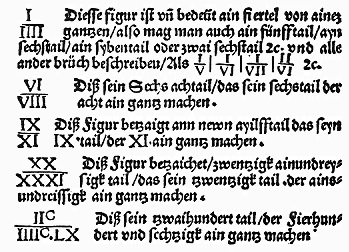 I Diesse figur ist vñ bedeüt ain fiertel von ainez
IIII gantzen/also mag man auch ain fünfftail/ayn
sechstail/ain sybentail oder zwai sechstail 2c. vnd alle
ander brüch beschreiben/Als I/V | I/VI | I/VII | II/VI 2c.
VI Diß sein Sechs achtail/das sein sechstail der
VIII acht ain gantz machen.
IX Diß Figur betzaigt ann newn ayilfftail das seyn
XI IX tail/der XI ain gantz machen.
XX Diß Figur betzaichet/zwentzigk ainundrey-
XXXI sigk tail/das sein zwentzigk tail .der ains-
undreissigk ain gantz machen.
IIC Diß sein zwaihundert tail/der Fierhun-
IIIIC.LX dert vnd sechtzigk ain gantz machen